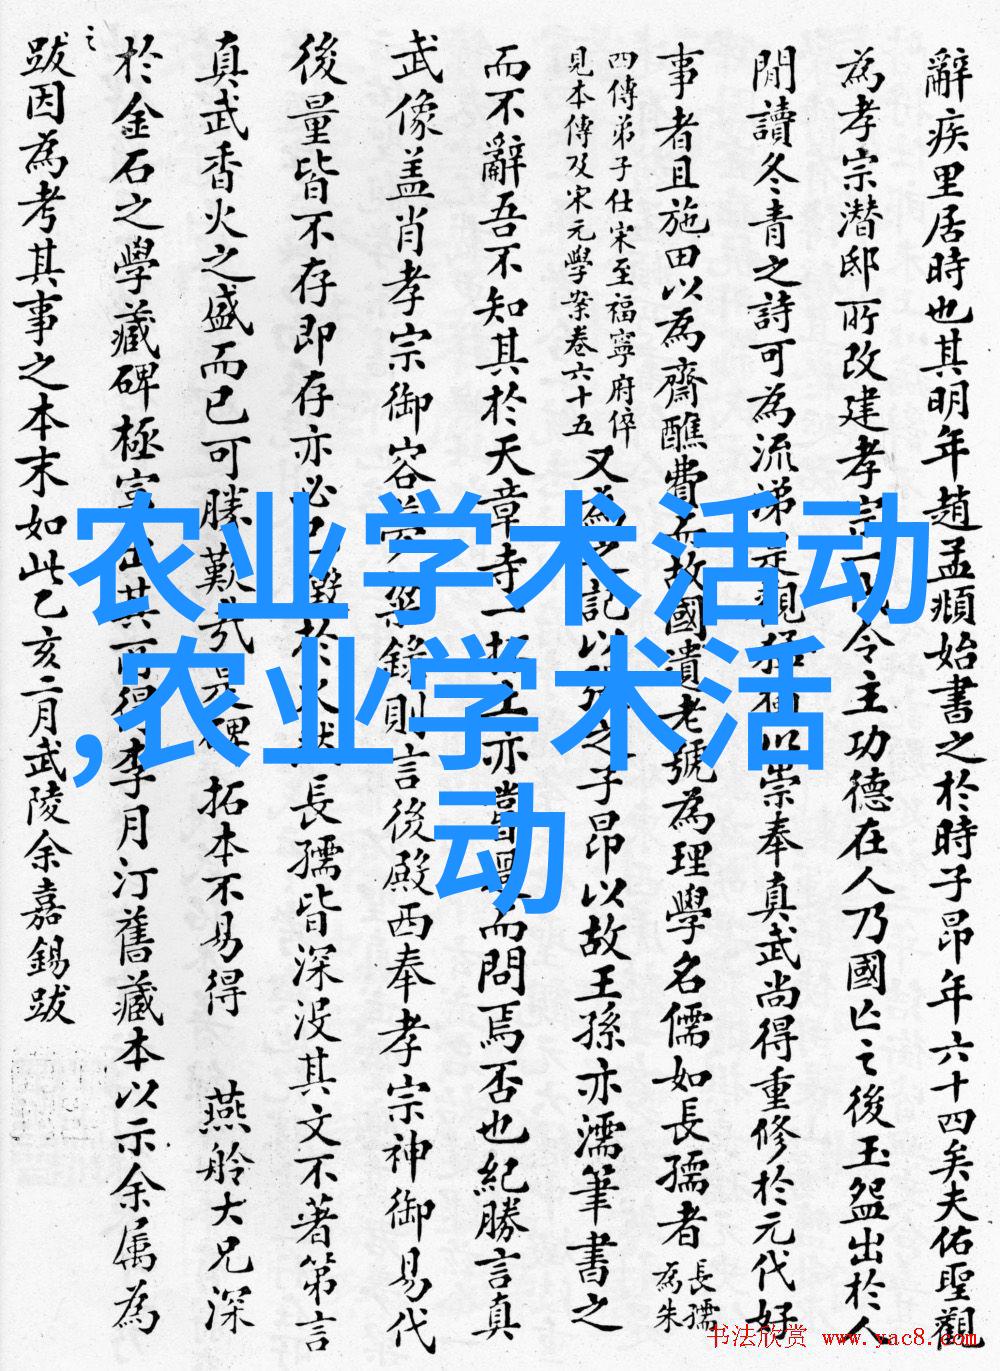 辭疾里居時也其明年趙孟頫始書之於時子昂年六十四矣夫佑聖觀
為孝宗潜邸所改建孝宗一令主功德在人乃國亡之後玉盌出於人
間讀冬青之詩可為流涕是觀以崇奉真武尚得重修於元代好
事者且施田以為齋醮費而故國遺老號為理學名儒如長孺者
長孺
為朱
四傳弟子仕宋至福寧府倅
見本傳及宋元學案卷六十五
又為之記以之子昂以故王孫亦濡筆書之
而不辭吾不知其於天章寺一土亦嘗而問焉否也紀勝言真
武像盖肖孝宗御容夢粱錄則言後殿西奉孝宗神御易代
後量皆不存即存亦必已毀於火然長孺皆深没其文不著第言
真武香火之盛而已可勝歎哉是碑拓本不易得 燕舲大兄深
於金石之學藏碑極富出其所得李月汀舊藏本以示余属為
之
跋因為考其事之本末如此乙亥二月武陵余嘉錫跋
农业学术活动
,农业学术活
动
书法欣赏 www.yac8.com